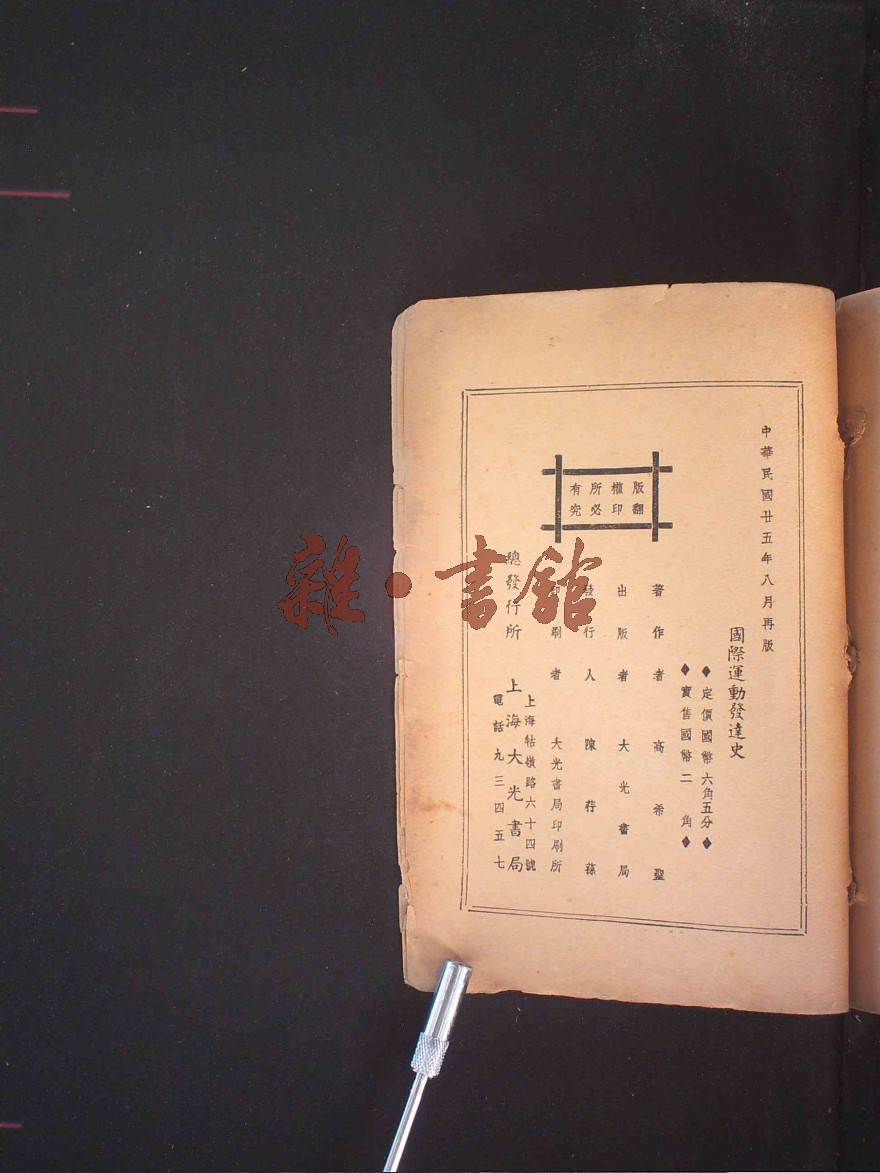 中華民國廿五年八月再版
國際運動發達史
◆定價國幣六角五分◆
◆實售國幣二角◆
版權所有
翻印必究
著作者 高希聖
出版者 大光書局
發行人 陳荇蓀
印刷者 大光書局印刷所
總發行所 上海大光書局
上海牯嶺路六十四號
電話九三四五七
雜·書館